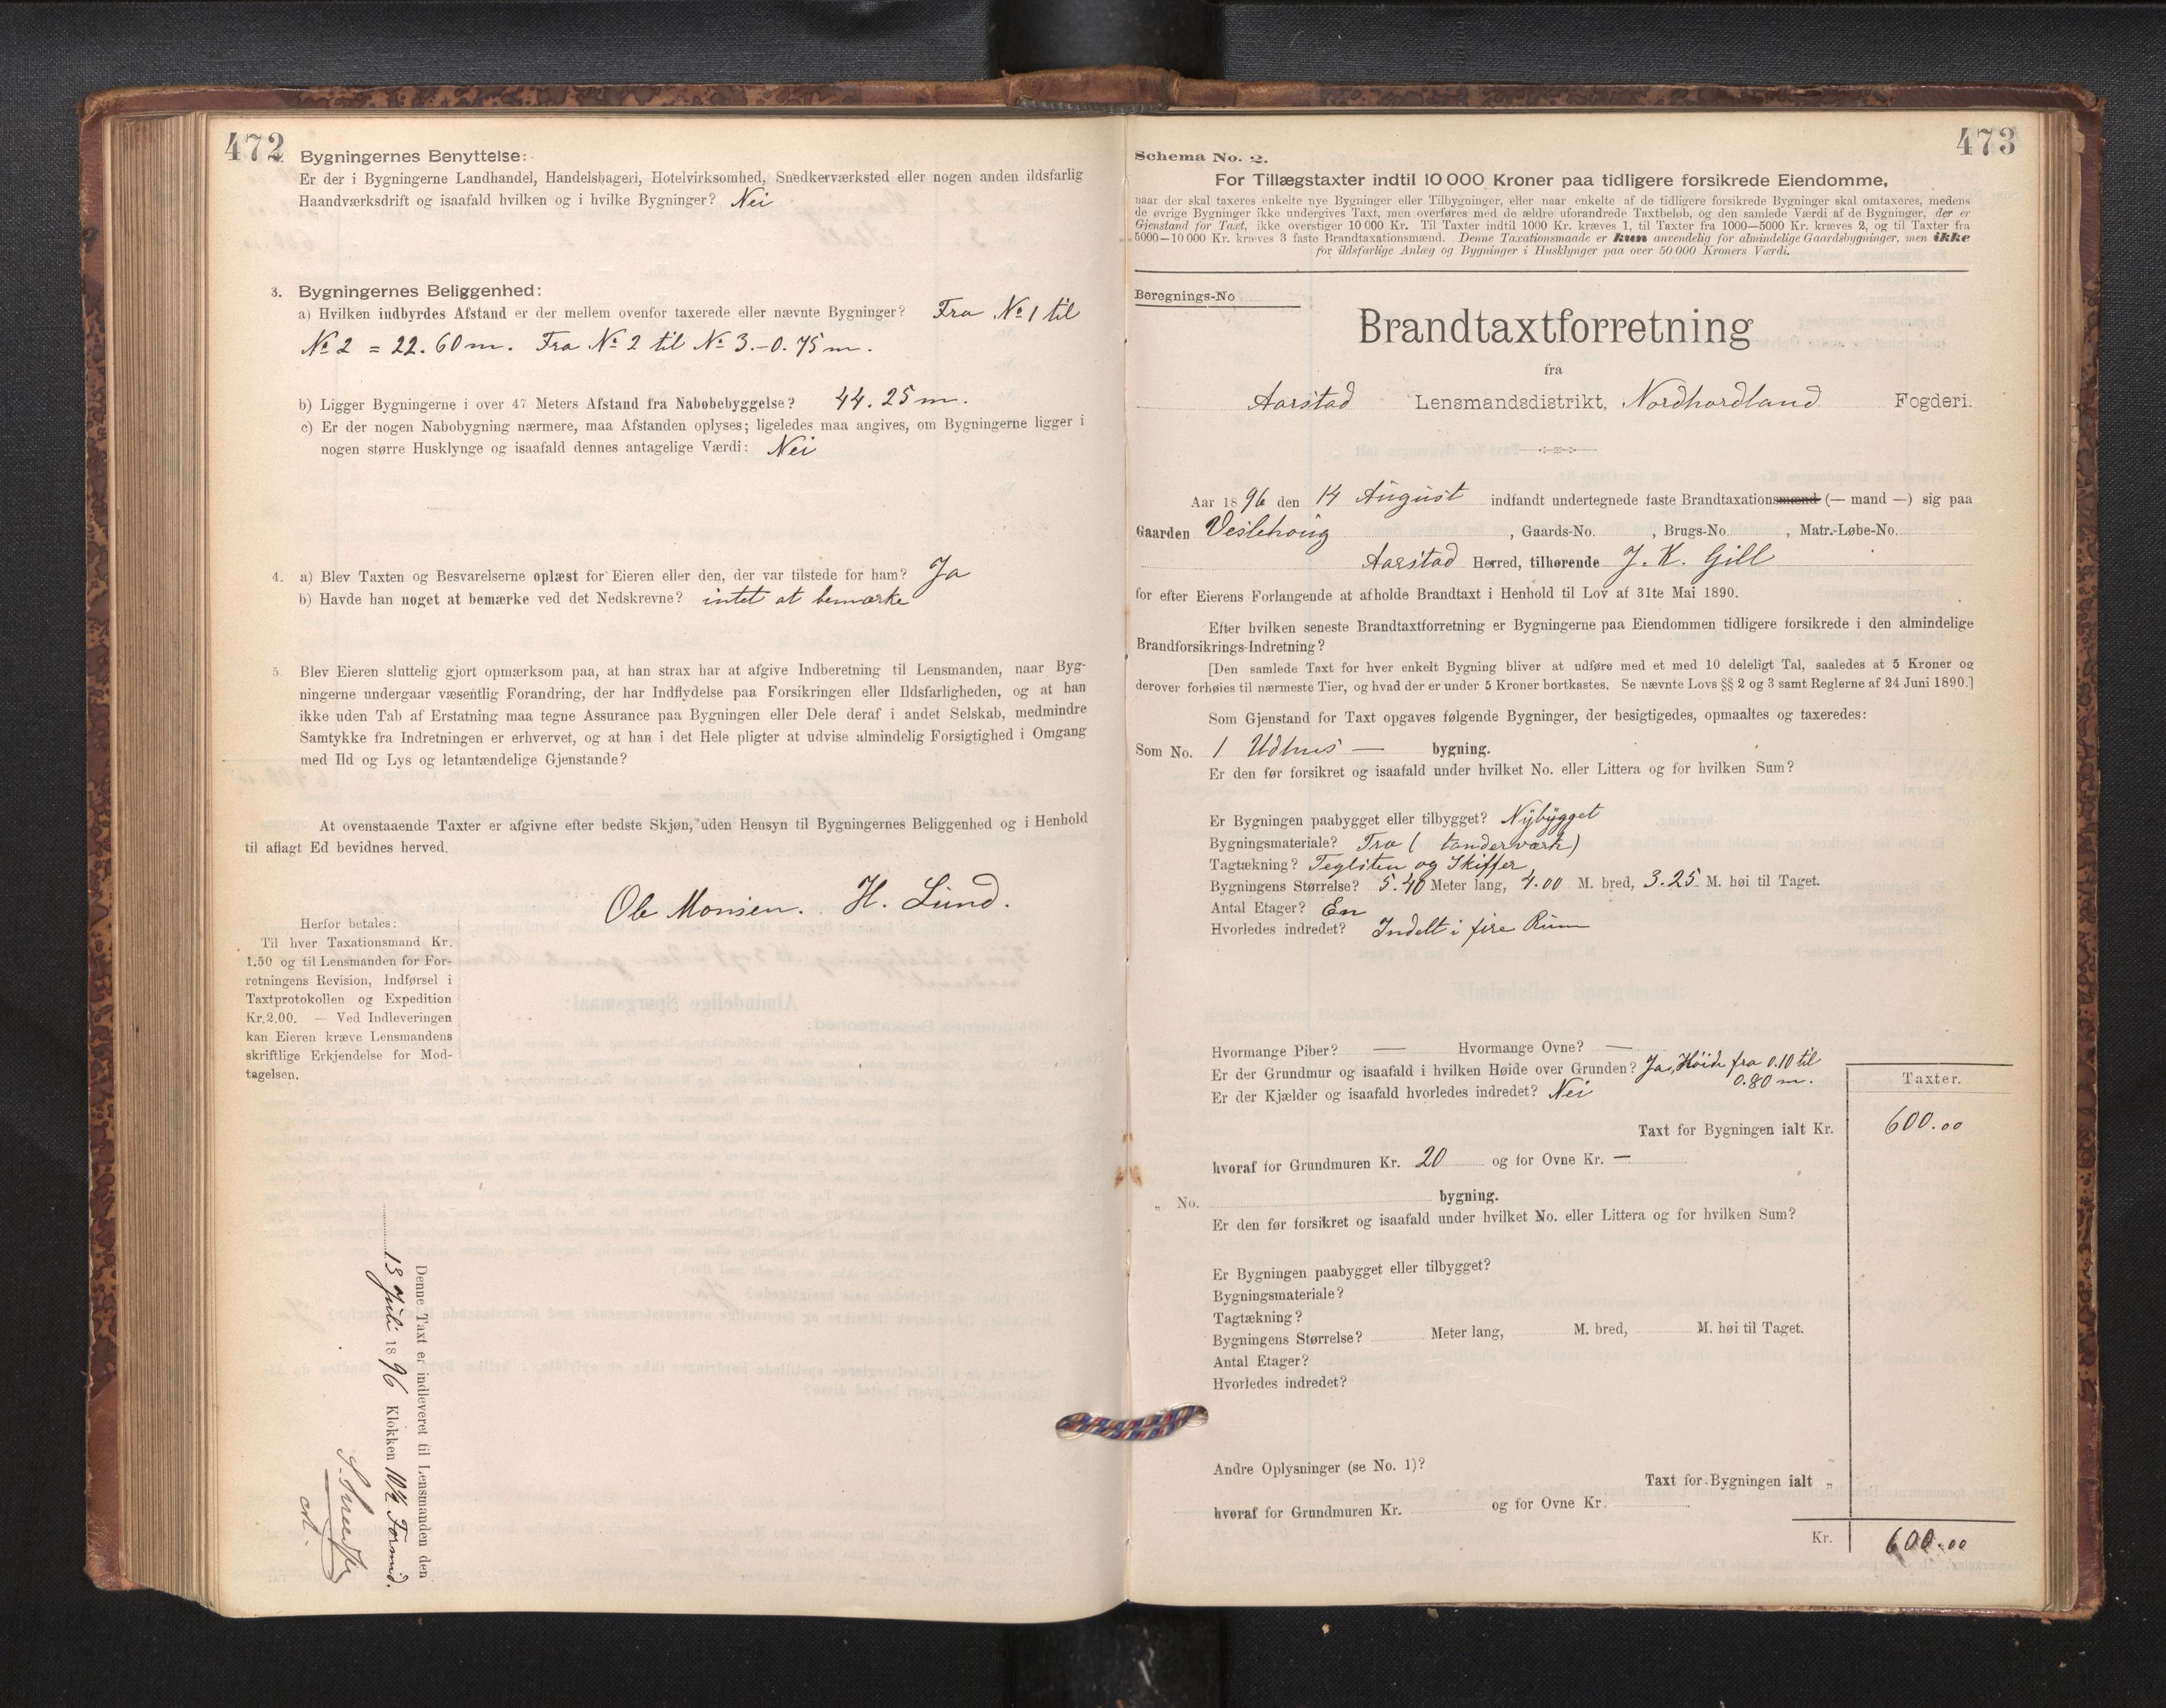 472
Bygningernes Benyttelse:
Er der i Bygningerne Landhandel, Handelsbageri, Hotelvirksomhed, Snedkerværksted eller nogen anden ildsfarlig
Haandværksdrift og isaafald hvilken og i hvilke Bygninger? Nei
3. Bygningernes Beliggenhed:
a) Hvilken indbyrdes Afstand er der mellem ovenfor taxerede eller nævnte Bygninger? Fra No 1 til
No 2 = 22.60 m. Fra No 2 til No 3.-0.75 m.
b) Ligger Bygningerne i over 47 Meters Afstand fra Nabobebyggelse? 44.25 m.
c) Er der nogen Nabobygning nærmere, maa Afstanden oplyses; ligeledes maa angives, om Bygningerne ligger i
nogen større Husklynge og isaafald dennes antagelige Værdi: Nei
4. a) Blev Taxten og Besvarelserne oplæst for Eieren eller den, der var tilstede for ham? Ja
b) Havde han noget at bemærke ved det Nedskrevne? intet at bemærke
5. Blev Eieren sluttelig gjort opmærksom paa, at han strax har at afgive Indberetning til Lensmanden, naar Byg-
ningerne undergaar væsentlig Forandring, der har Indflydelse paa Forsikringen eller Ildsfarligheden, og at han
ikke uden Tab af Erstatning maa tegne Assurance paa Bygningen eller Dele deraf i andet Selskab, medmindre
Samtykke fra Indretningen er erhvervet, og at han i det Hele pligter at udvise almindelig Forsigtighed i Omgang
med Ild og Lys og letantændelige Gjenstande?
At ovenstaaende Taxter er afgivne efter bedste Skjøn, uden Hensyn til Bygningernes Beliggenhed og i Henhold
til aflagt Ed bevidnes herved.
Ole Monsen. H. Lund.
Herfor betales:
Til hver Taxationsmand Kr.
1.50 og til Lensmanden for For-
retningens Revision, Indførsel i
Taxtprotokollen og Expedition
Kr. 2.00. — Ved Indleveringen
kan Eieren kræve Lensmandens
skriftlige Erkjendelse for Mod-
tagelsen.
Denne Taxt er indleveret til Lensmanden den
13 Juli 1896 Klokken 10½ Formid.
473
Schema No. 2.
For Tillægstaxter indtil 10 000 Kroner paa tidligere forsikrede Eiendomme,
naar der skal taxeres enkelte nye Bygninger eller Tilbygninger, eller naar enkelte af de tidligere forsikrede Bygninger skal omtaxeres, medens
de øvrige Bygninger ikke undergives Taxt, men overføres med de ældre uforandrede Taxtbeløb, og den samlede Værdi af de Bygninger, der er
Gjenstand for Taxt, ikke overstiger 10 000 Kr. Til Taxter indtil 1000 Kr. kræves 1, til Taxter fra 1000—5000 Kr. kræves 2, og til Taxter fra
5000—10 000 Kr. kræves 3 faste Brandtaxationsmænd. Denne Taxationsmaade er kun anvendelig for almindelige Gaardsbygninger, men ikke
for ildsfarlige Anlæg og Bygninger i Husklynger paa over 50 000 Kroners Værdi.
Beregnings-No
Brandtaxtforretning
fra
Aarstad Lensmandsdistrikt, Nordhordland Fogderi.
Aar 1896 den 14 August indfandt undertegnede faste Brandtaxationsmænd (— mand —) sig paa
Gaarden Veslehoug, Gaards-No. , Brugs-No. , Matr.-Løbe-No.
Aarstad Herred, tilhørende J. K. Gill
for efter Eierens Forlangende at afholde Brandtaxt i Henhold til Lov af 31te Mai 1890.
Efter hvilken seneste Brandtaxtforretning er Bygningerne paa Eiendommen tidligere forsikrede i den almindelige
Brandforsikrings-Indretning?
[Den samlede Taxt for hver enkelt Bygning bliver at udføre med et med 10 deleligt Tal, saaledes at 5 Kroner og
derover forhøies til nærmeste Tier, og hvad der er under 5 Kroner bortkastes. Se nævnte Lovs §§ 2 og 3 samt Reglerne af 24 Juni 1890.]
Som Gjenstand for Taxt opgaves følgende Bygninger, der besigtigedes, opmaaltes og taxeredes:
Som No. 1 Udhus — bygning.
Er den før forsikret og isaafald under hvilket No. eller Littera og for hvilken Sum?
Er Bygningen paabygget eller tilbygget? Nybygget
Bygningsmateriale? Træ (tanderværk)
Tagtækning? Teglsten og Skiffer
Bygningens Størrelse? 5.40 Meter lang, 4.00 M. bred, 3.25 M. høi til Taget.
Antal Etager? En
Hvorledes indredet? Indelt i fire Rum
Hvormange Piber? — Hvormange Ovne? —
Er der Grundmur og isaafald i hvilken Høide over Grunden? Ja, Høide fra 0.10 til
0.80 m.
Er der Kjælder og isaafald hvorledes indredet? Nei
Taxter.
Taxt for Bygningen ialt Kr. 600.00
hvoraf for Grundmuren Kr. 20 og for Ovne Kr. —
„ No. bygning.
Er den før forsikret og isaafald under hvilket No. eller Littera og for hvilken Sum?
Er Bygningen paabygget eller tilbygget?
Bygningsmateriale?
Tagtækning?
Bygningens Størrelse? Meter lang, M. bred, M. høi til Taget.
Antal Etager?
Hvorledes indredet?
Andre Oplysninger (se No. 1)?
Taxt for Bygningen ialt „
hvoraf for Grundmuren Kr. og for Ovne Kr.
Kr. 600.00